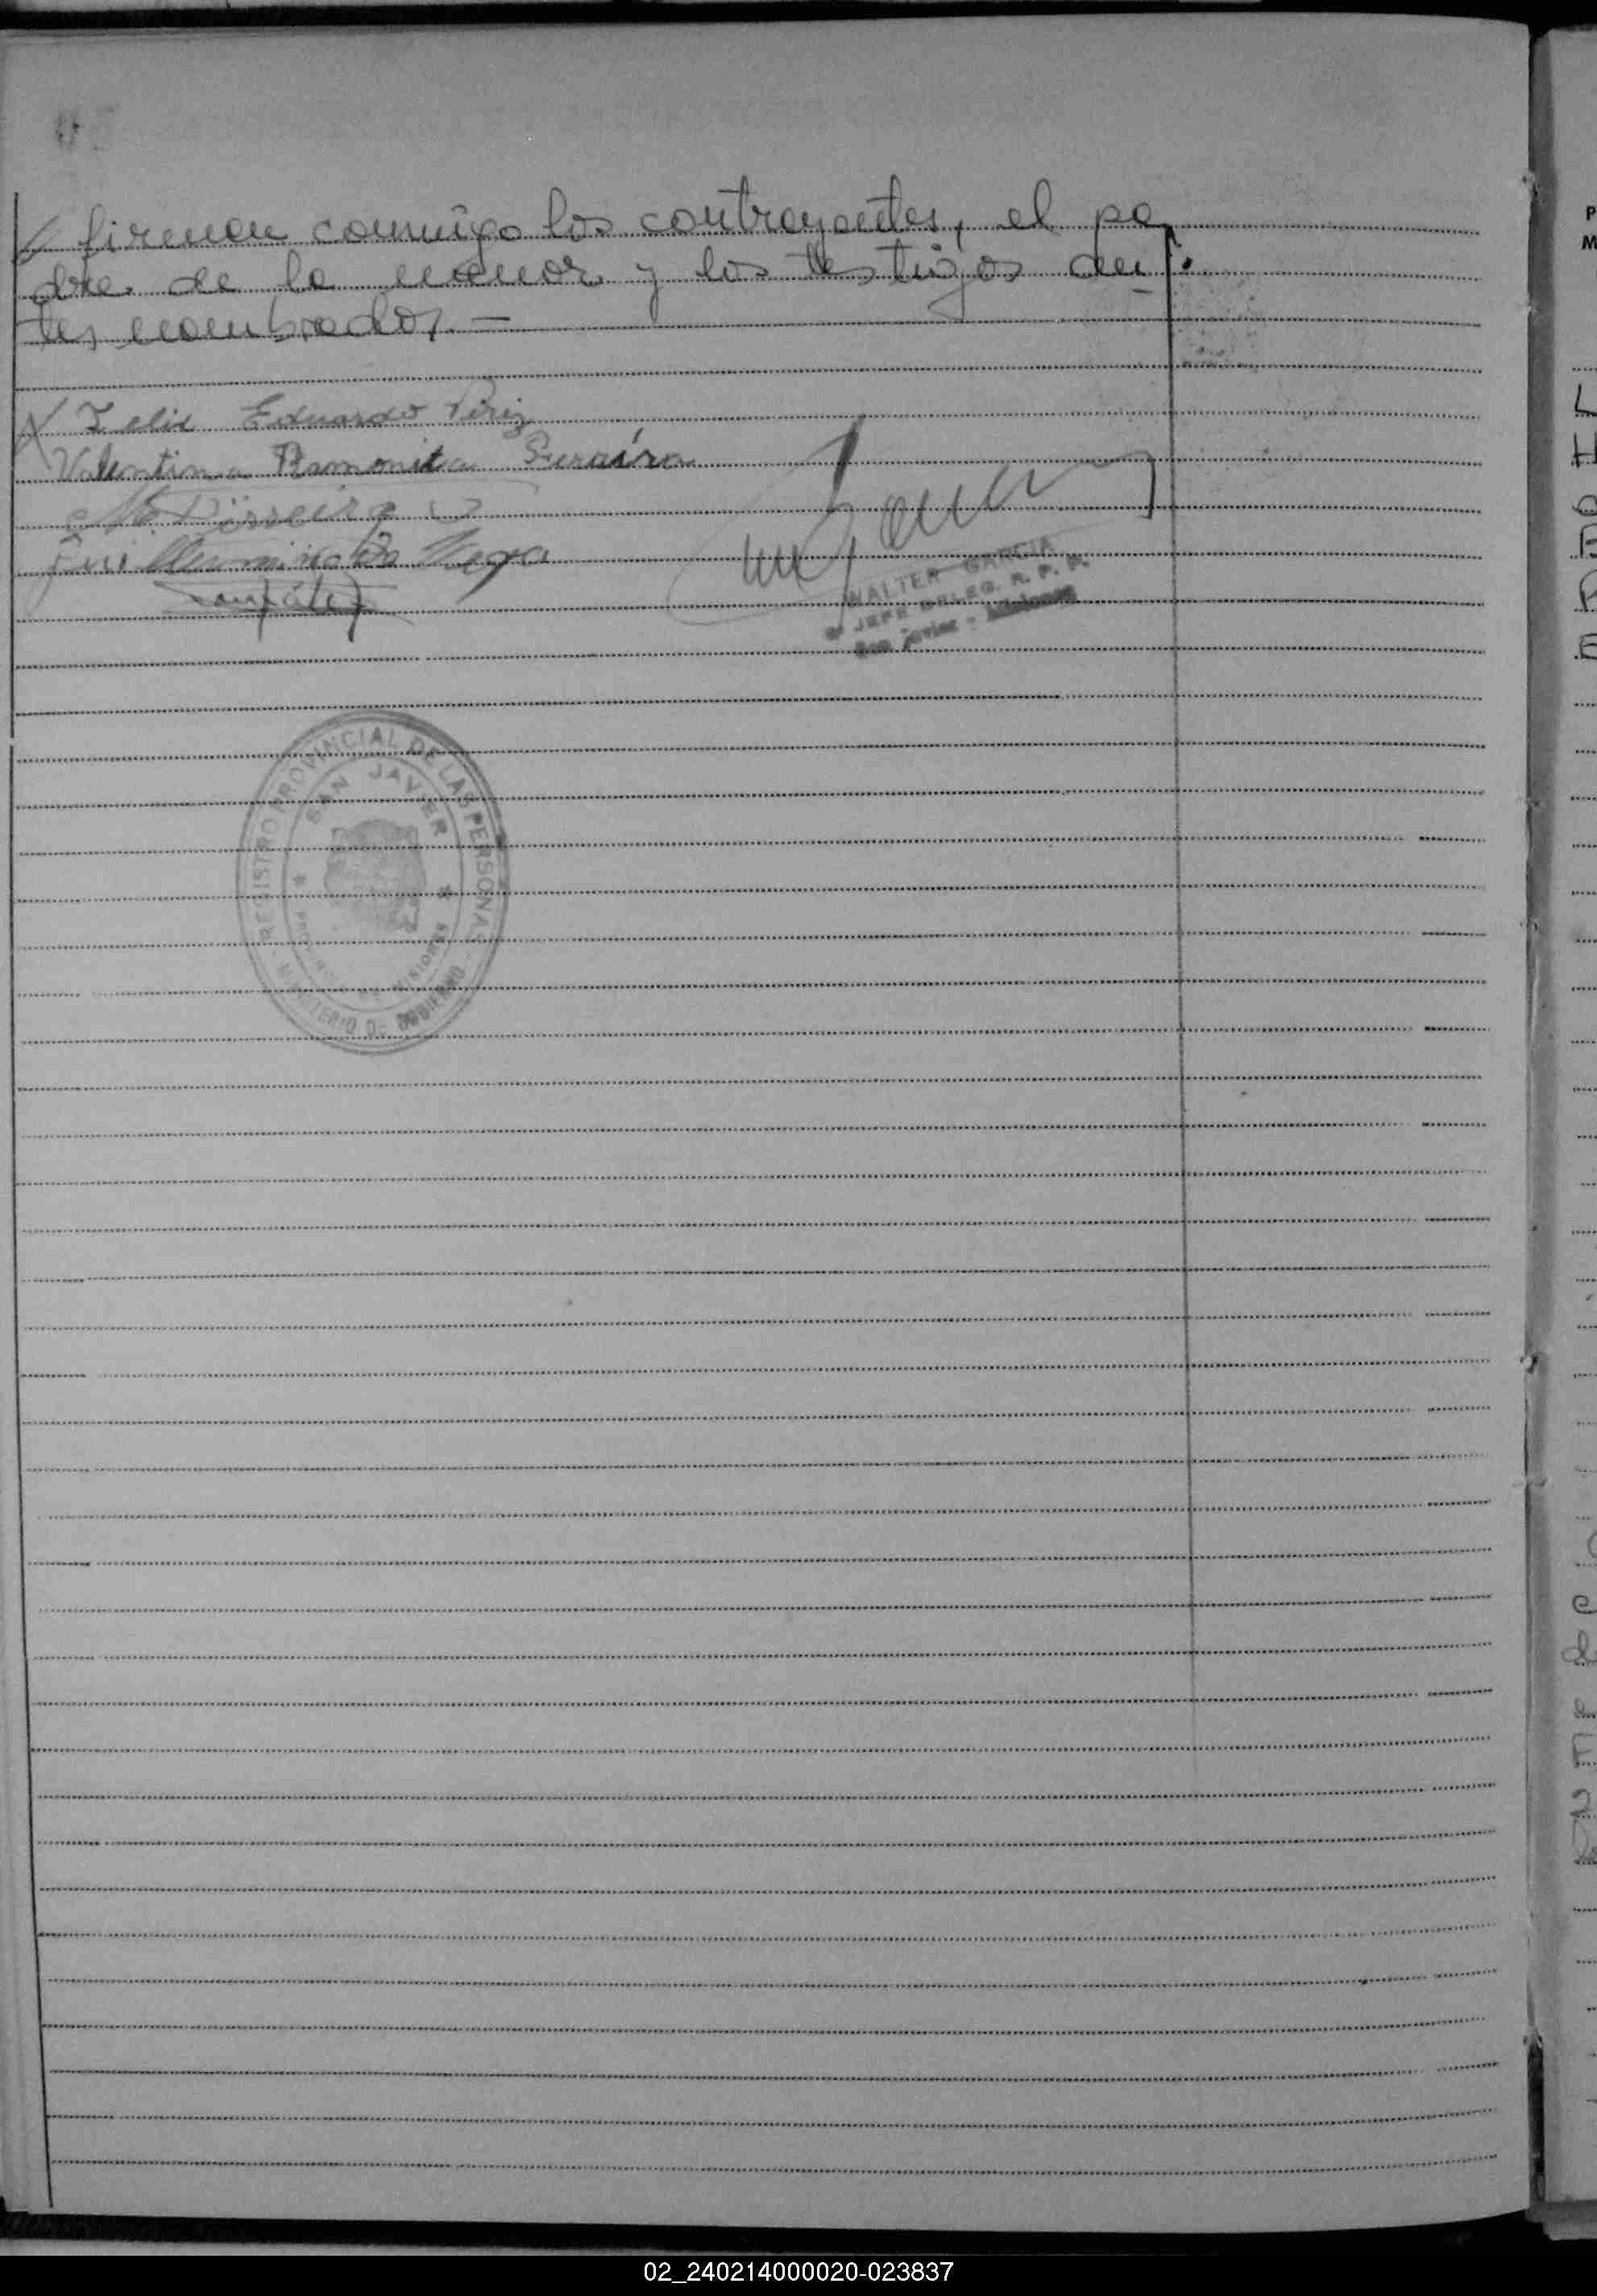 firman conmigo los contrayentes, el pa
dre de la menor y los testigos an
tes nombrados. —
Felix Eduardo Piriz
Valentina Ramonita Pereira
Luis
González
WALTER GARCIA
JEFE DELEG. R. P. P.
San Javier - Misiones
REGISTRO PROVINCIAL DE LAS PERSONAS
SAN JAVIER
MINISTERIO DE GOBIERNO
MISIONES
P
M
L
H
B
E
e
d
e
F
02_240214000020-023837